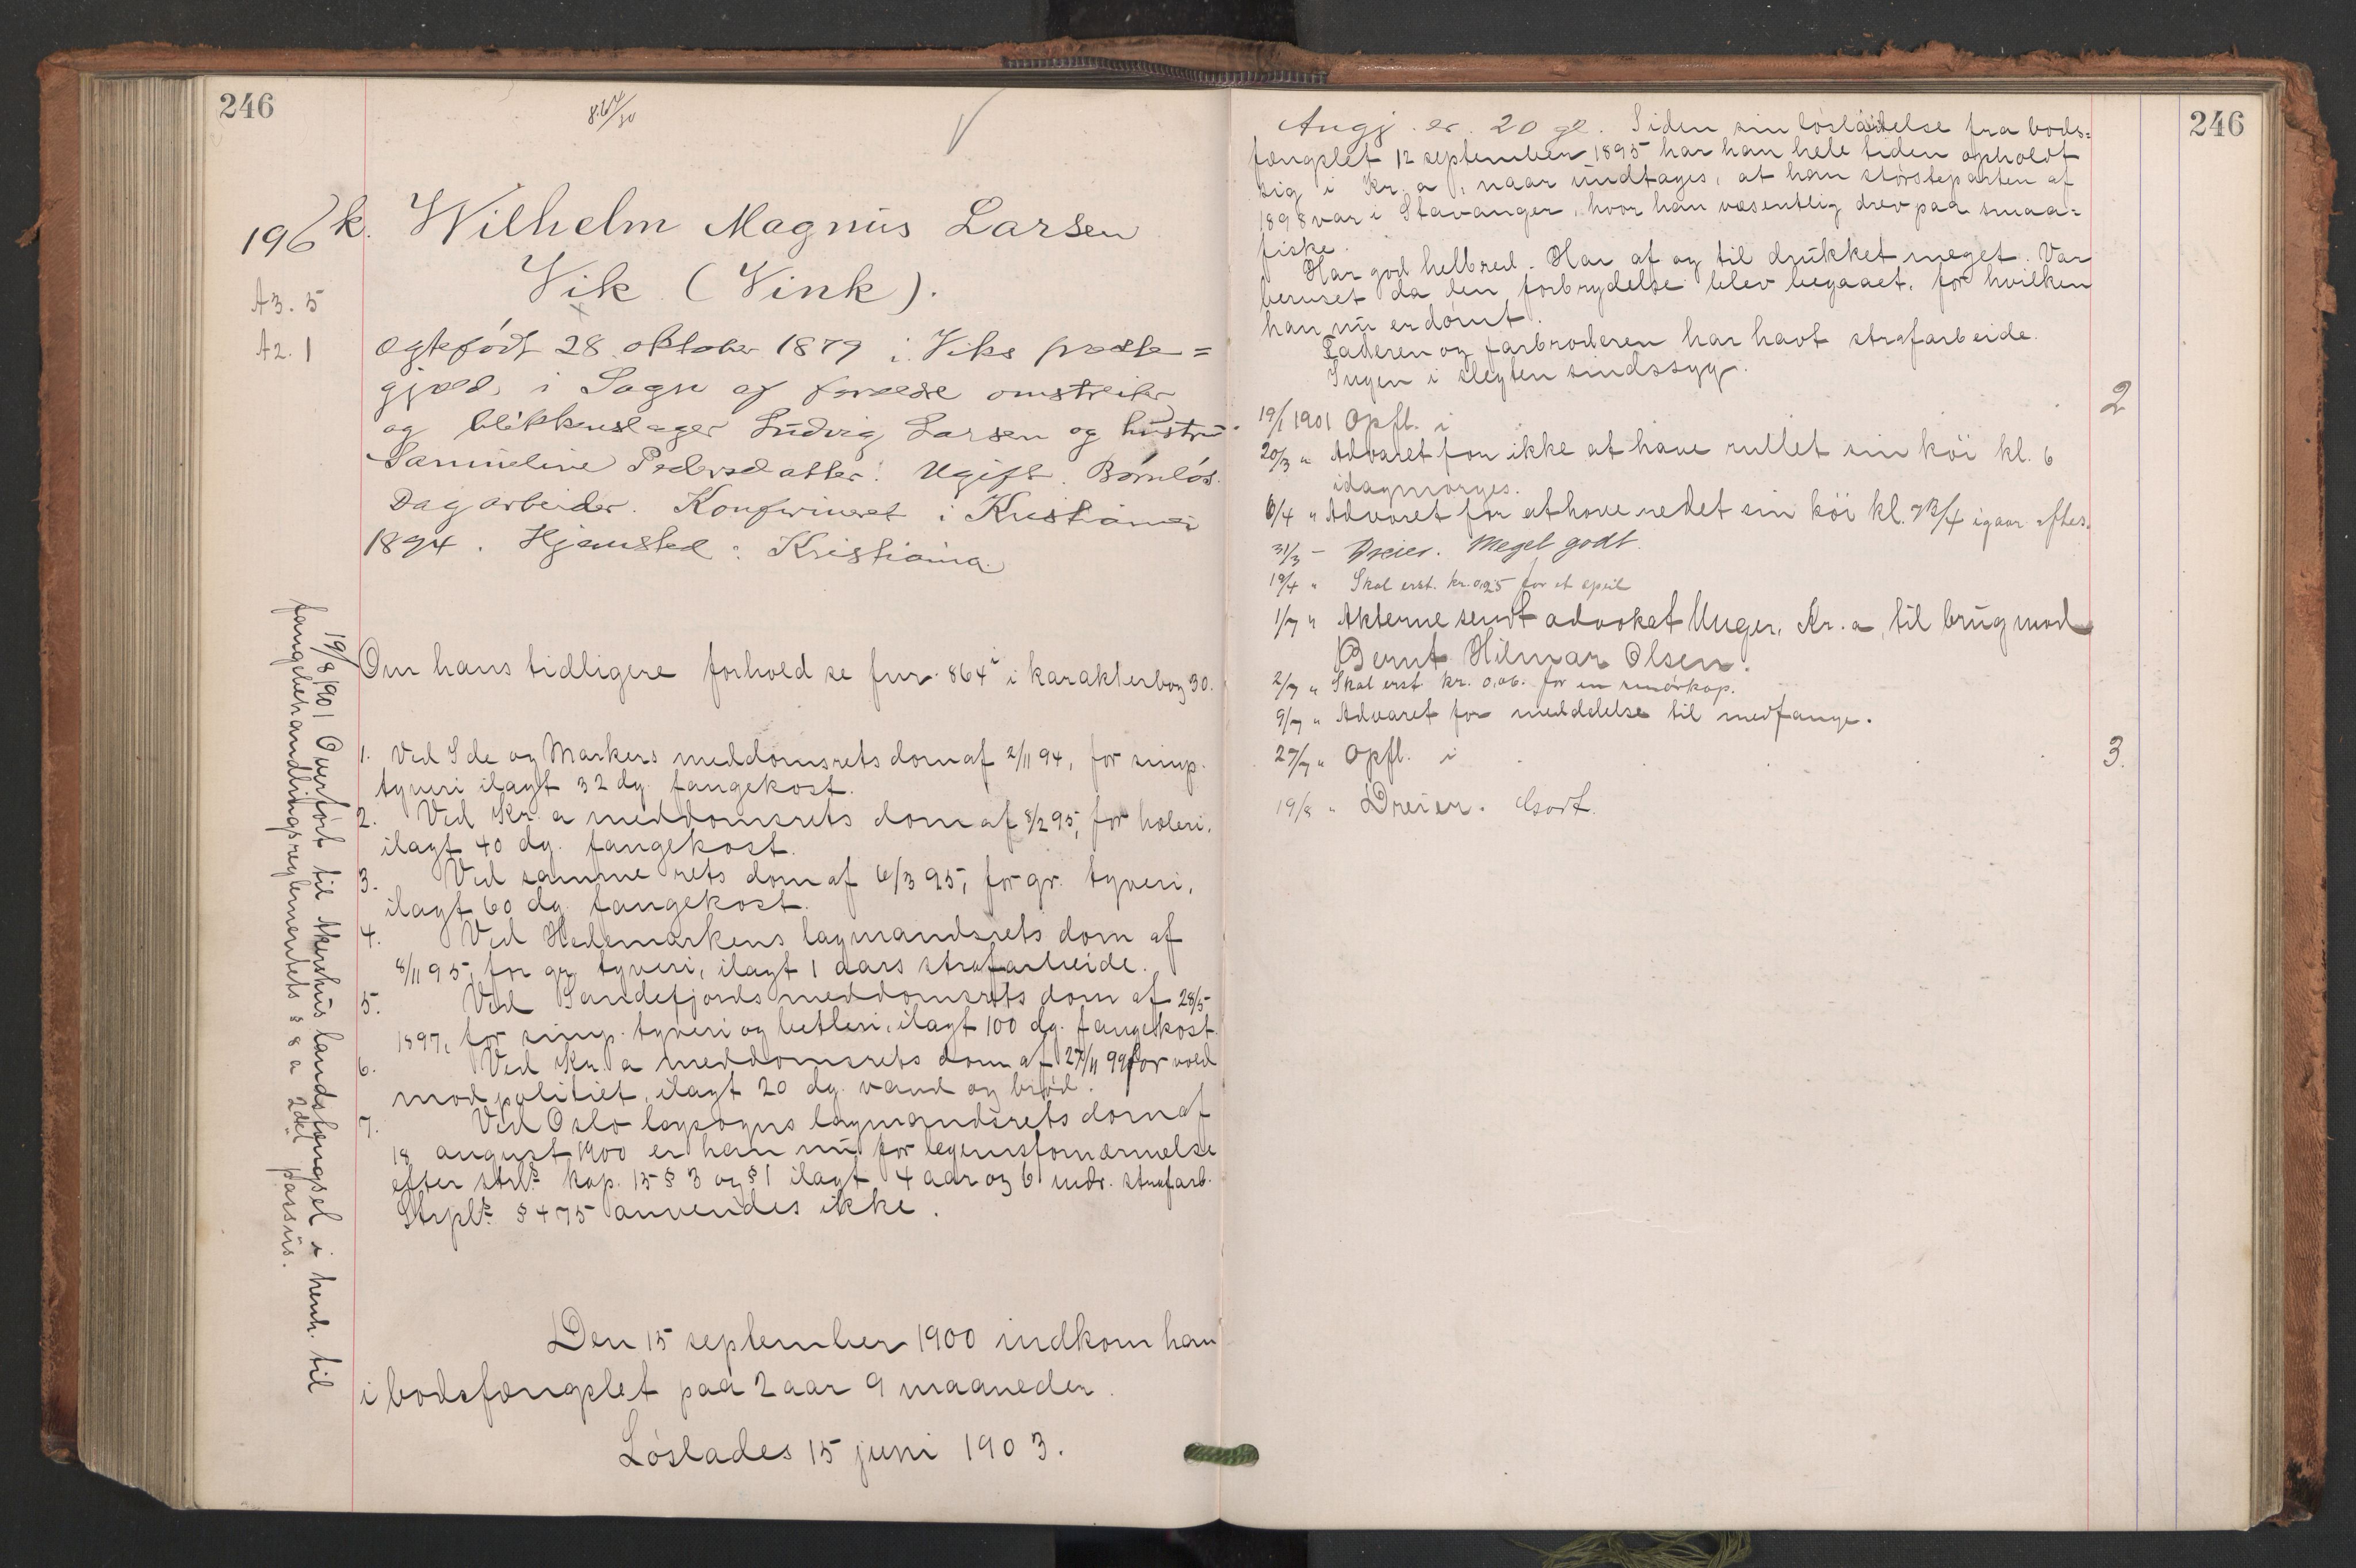 246
864/30
196 k. Wilhelm Magnus Larsen
Vik (Vink).
A3. 5
A2. 1
Ægtefødt 28 oktober 1879 i Viks præste=
gjæld i Sogn af forældre omstreifer
og blikkenslager Ludvig Larsen og hustru
Samueline Pedersdatter. Ugift. Børnløs.
Dagarbeider. Konfirmeret i Kristiania
1894. Hjemsted: Kristiania.
Om hans tidligere forhold se fnr. 864 i i karakterbog 30.
1. Ved Ide og Markers meddomsrets dom af 2/11 94, for simp.
tyveri ilagt 32 dg. fangekost.
2. Ved Kr.a meddomsrets dom af 8/2 95, for hæleri,
ilagt 40 dg. fangekost.
3. Ved samme rets dom af 6/3 95, for gr. tyveri,
ilagt 60 dg. fangekost.
4. Ved Hedemarkens lagmandsrets dom af
8/11 95, for gr. tyveri, ilagt 1 aars strafarbeide.
5. Ved Sandefjords meddomsrets dom af 28/5
1897, for simp. tyveri og betleri, ilagt 100 dg. fangekost.
6. Ved Kr.a meddomsrets dom af 27/11 99 for vold
mod politiet, ilagt 20 dg. vand og brød.
7. Ved Oslo lagsogns lagmandsrets dom af
18 august 1900 er han nu for legemsfornærmelse
efter strl.s kap. 15 § 3 og § 1 ilagt 4 aar og 6 mdr. strafarb.
Strpl.s § 475 anvendes ikke.
Den 15 september 1900 indkom han
i bodsfængslet paa 2 aar 9 maaneder.
Løslades 15 juni 1903.
19/8 1901 Overført til Akershus landsfængsel i henh. til
fangebehandlingsreglementets § 8 a 2det passus.
246
Angj. er 20 gl. Siden sin løsladelse fra bods=
fængslet 12 september 1895 har han hele tiden opholdt
sig i Kr.a, naar undtages, at han størsteparten af
1898 var i Stavanger, hvor han væsentlig drev paa smaa=
fiske.
Har god helbred. Har af og til drukket meget. Var
beruset da den forbrydelse blev begaaet, for hvilken
han nu er dømt.
Faderen og farbroderen har havt strafarbeide.
Ingen i slegten sindssyg.
19/1 1901 Opfl. i 2
20/3 " Advaret for ikke at have rullet sin køi kl. 6
idagmorges.
6/4 " Advaret for at have redet sin køi kl. 7 3/4 igaar aftes.
31/3 - Dreier. Meget godt.
19/4 " Skal erst. kr. 0,25 for et speil
1/7 " Akterne sendt advokat Unger, Kr.a, til brug mod
Bernt Hilmar Olsen.
2/7 " Skal erst. kr. 0,06. for en smørkop.
9/7 " Advaret for meddelelse til medfange.
27/7 " Opfl. i 3.
19/8 " Dreier. Godt.